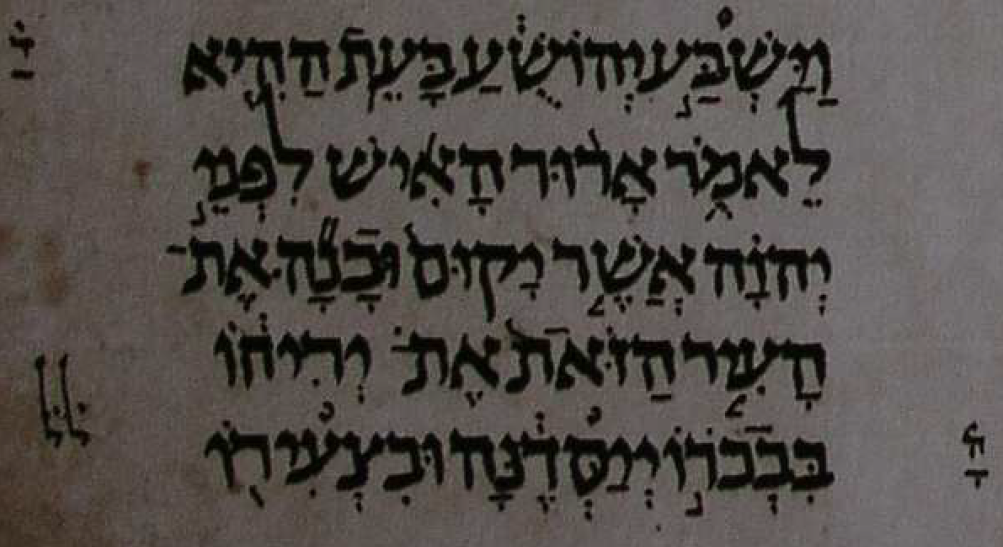 וַיַּשְׁבַּ֣ע יְהוֹשֻׁ֔עַ בָּעֵ֥ת הַהִ֖יא
לֵאמֹ֑ר אָר֨וּר הָאִ֜ישׁ לִפְנֵ֣י
יְהֹוָ֗ה אֲשֶׁ֤ר יָקוּם֙ וּבָנָ֞ה אֶת־
הָעִ֤יר הַזֹּאת֙ אֶת־ יְרִיח֔וֹ
בִּבְכֹר֣וֹ יְיַסְּדֶ֔נָּה וּבִצְעִיר֖וֹ